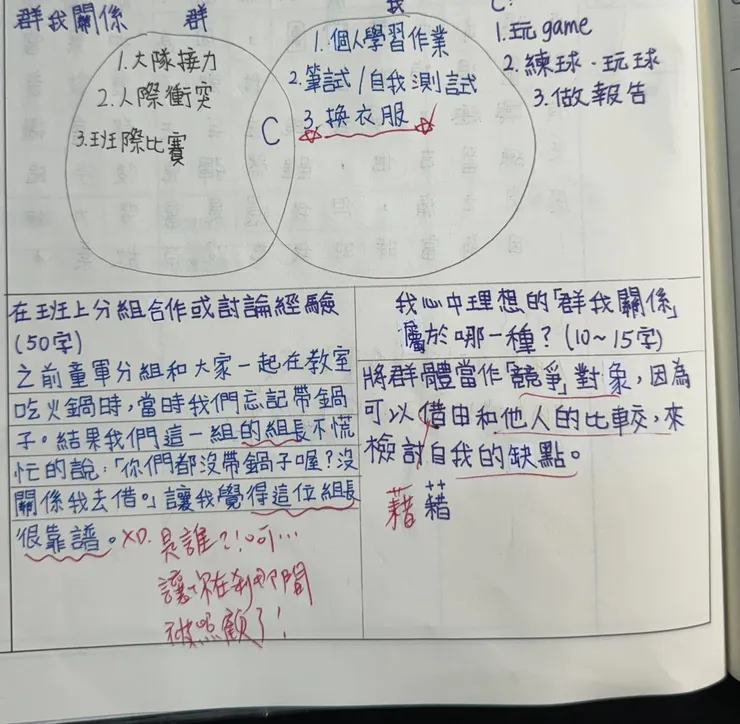 群我關係
群
我
C.
1.大隊接力
2.人際衝突
3.班際比賽
C
1.個人學習作業
2.筆試/自我測試
3.換衣服
1.玩game
2.練球.玩球
3.做報告
在班上分組合作或討論經驗
(50字)
之前童軍分組和大家一起在教室
吃火鍋時,當時我們忘記帶鍋
子。結果我們這一組的組長不慌
忙的說:「你們都沒帶鍋子喔?沒
關係我去借。」讓我覺得這位組長
很靠譜。
XD. 是誰?!呵…
讓你在剎那間
被照顧了!
我心中理想的「群我關係」
屬於哪一種?(10~15字)
將群體當作「競爭」對象,因為
可以借由和他人的比較,來
檢討自我的缺點。
藉 藉